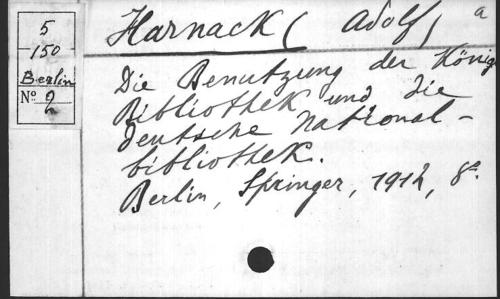 5
150
Berlin
Nº 2
Harnack (Adolf) a
Die Benutzung der König
Bibliothek und die
deutsche National-
bibliothek.
Berlin, Springer, 1912, 8º.